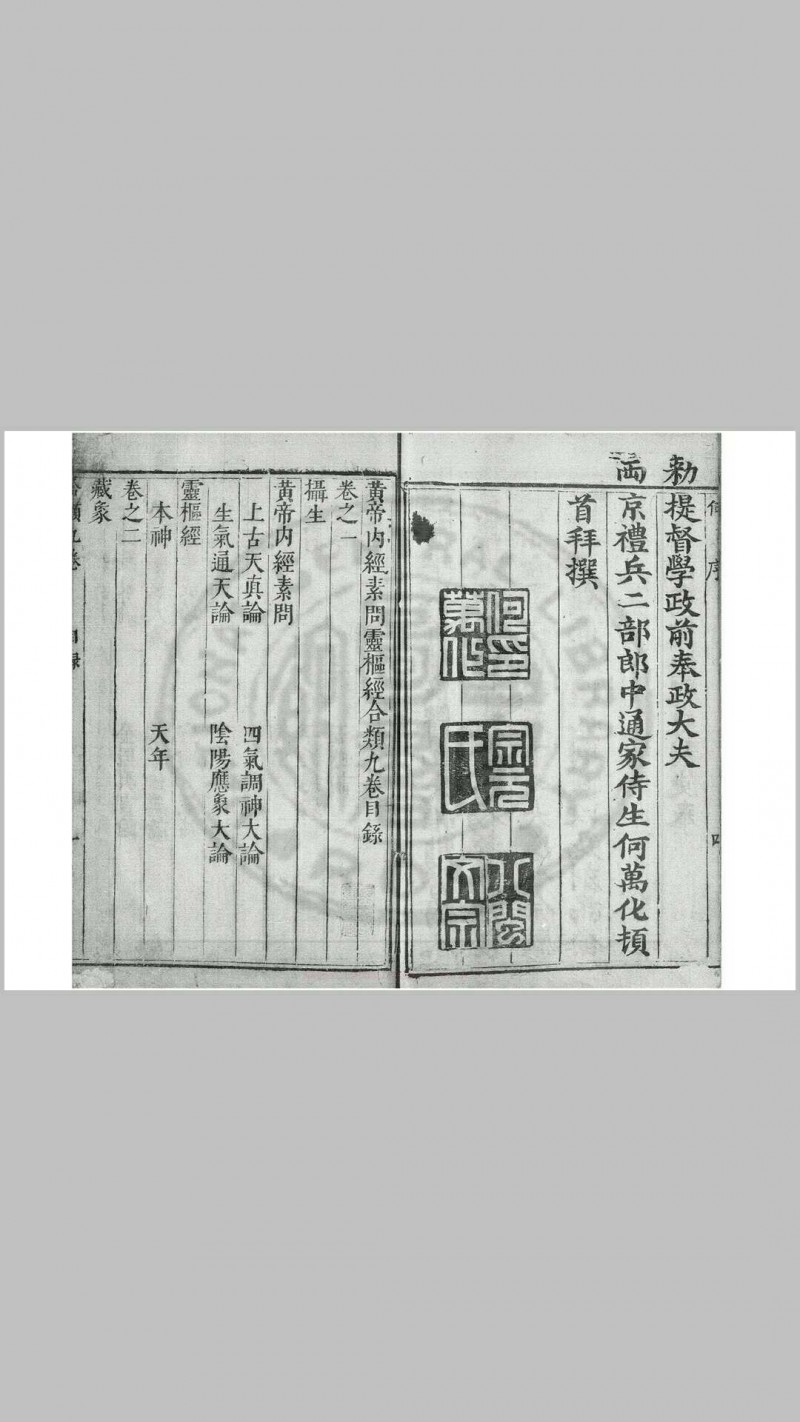 何序
勑
提督學政前奉政大夫
兩
京禮兵二部郎中通家侍生何萬化頓
首拜撰
何萬化印
宗元氏
八閩文宗
黃帝內經素問靈樞經合類九卷目錄
卷之一
攝生
黃帝內經素問
上古天真論 四氣調神大論
生氣通天論 陰陽應象大論
靈樞經
本神 天年
卷之二
藏象
合類九卷 目錄 一